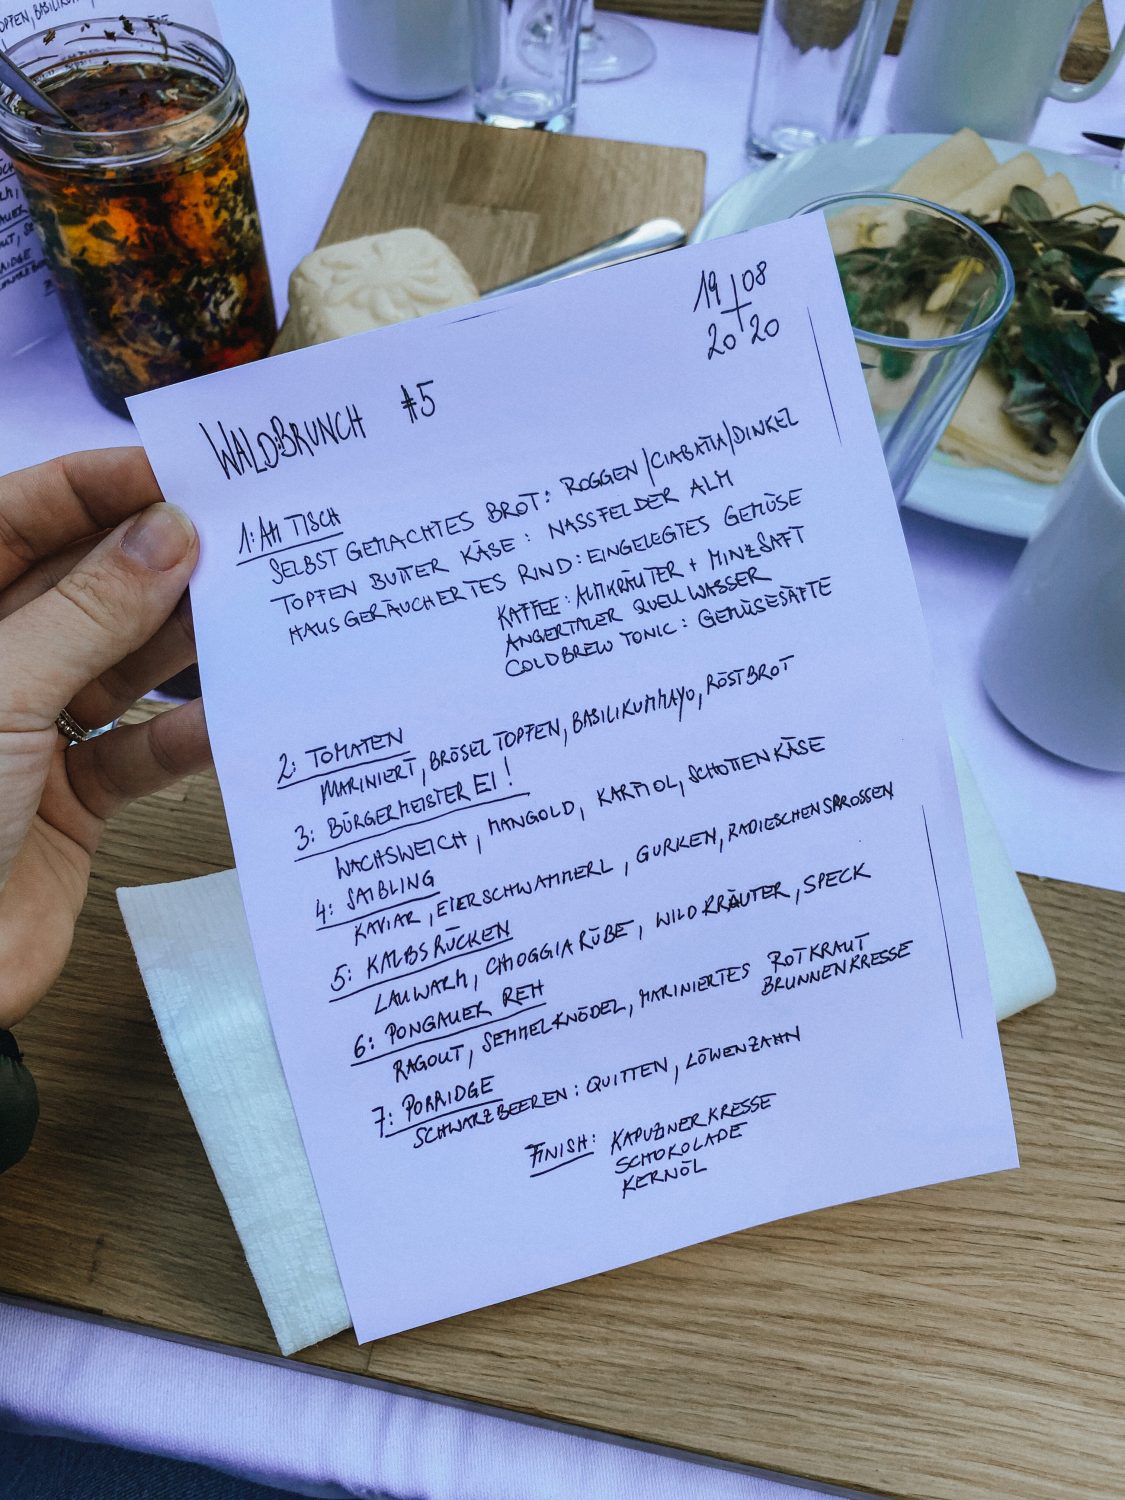 19 | 08
20 | 20
WALD:BRUNCH #5
1: AM TISCH
SELBST GEMACHTES BROT: ROGGEN/CIABATTA/DINKEL
TOPFEN BUTTER KÄSE: NASSFELDER ALM
HAUSGERÄUCHERTES RIND: EINGELEGTES GEMÜSE
KAFFEE: ALMKRÄUTER + MINZSAFT
ANGERTALER QUELLWASSER
COLDBREW TONIC: GEMÜSESÄFTE
2: TOMATEN
MARINIERT, BRÖSELTOPFEN, BASILIKUMMAYO, RÖSTBROT
3: BÜRGERMEISTER EI!
WACHSWEICH, MANGOLD, KARFIOL, SCHOTTENKÄSE
4: SAIBLING
KAVIAR, EIERSCHWAMMERL, GURKEN, RADIESCHENSPROSSEN
5: KALBSRÜCKEN
LAUWARM, CHIOGGIA RÜBE, WILDKRÄUTER, SPECK
6: PONGAUER REH
RAGOUT, SEMMELKNÖDEL, MARINIERTES ROTKRAUT
BRUNNENKRESSE
7: PORRIDGE
SCHWARZBEEREN: QUITTEN, LÖWENZAHN
FINISH: KAPUZINERKRESSE
SCHOKOLADE
KERNÖL